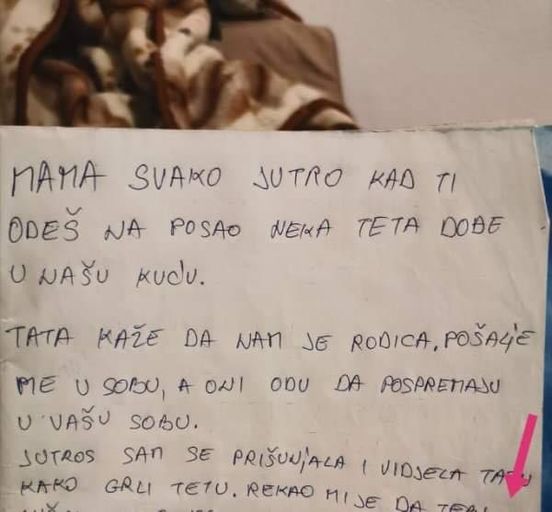 MAMA SVAKO JUTRO KAD TI
ODEŠ NA POSAO NEKA TETA DOĐE
U NAŠU KUĆU.
TATA KAŽE DA NAM JE RODICA. POŠALJE
ME U SOBU, A ONI ODU DA POSPREMAJU
U VAŠU SOBU.
JUTROS SAM SE PRIŠUNJALA I VIDJELA TATU
KAKO GRLI TETU. REKAO MI JE DA TEBI